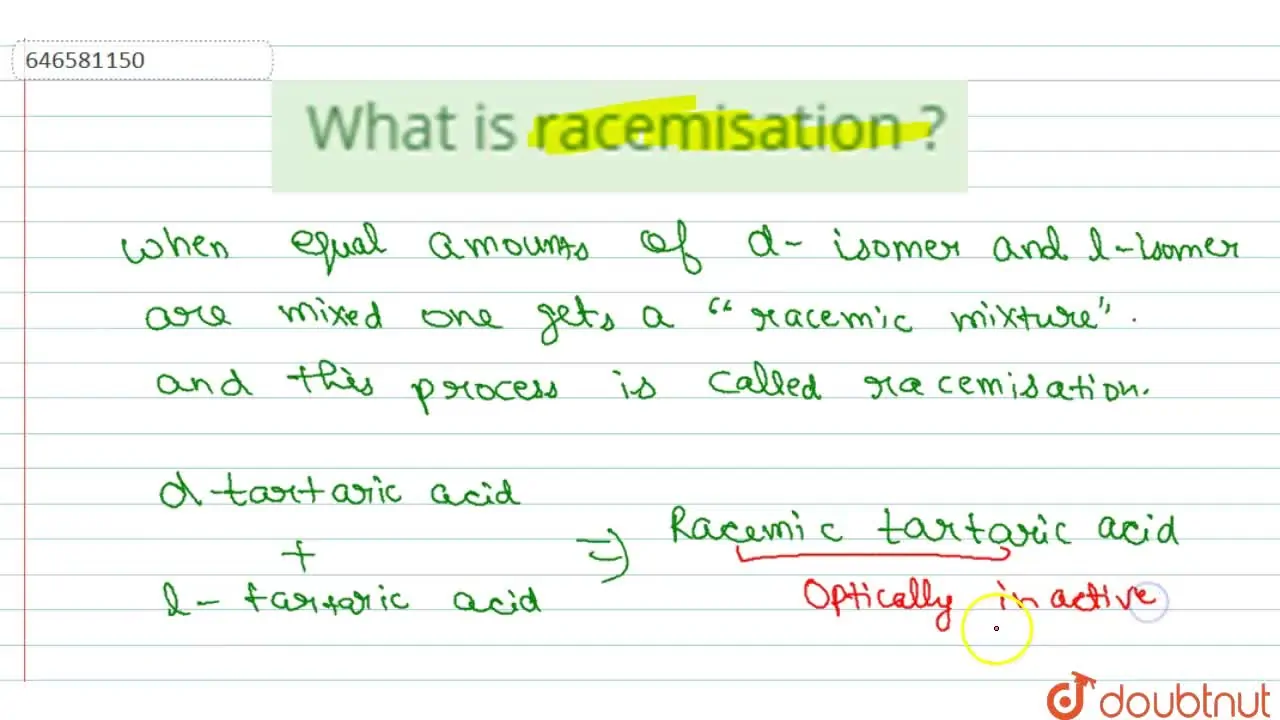 646581150
What is racemisation ?
When equal amounts of d- isomer and l-isomer
are mixed one gets a "racemic mixture".
and this process is called racemisation.
d-tartaric acid
+
l-tartaric acid
⇒ Racemic tartaric acid
Optically inactive
doubtnut